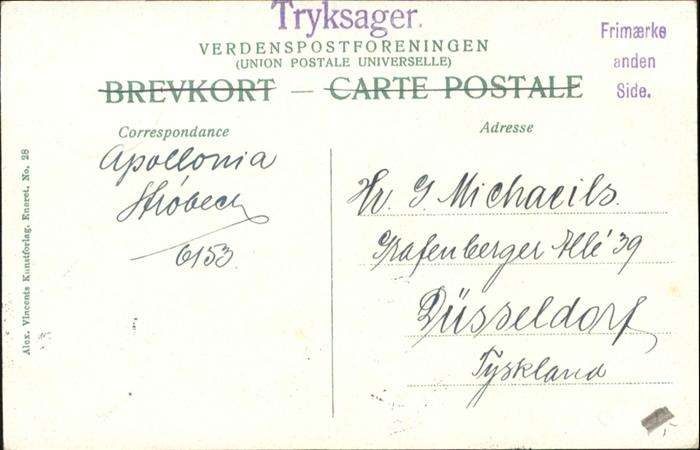 Tryksager.
Frimærke
anden
Side.
VERDENSPOSTFORENINGEN
(UNION POSTALE UNIVERSELLE)
BREVKORT — CARTE POSTALE
Correspondance
Adresse
Apollonia
Ströbeck
6153
Hr. G. Michaeils.
Grafenberger Allé 39
Düsseldorf
Tyskland
Alex. Vincents Kunstforlag, Eneret. No. 28